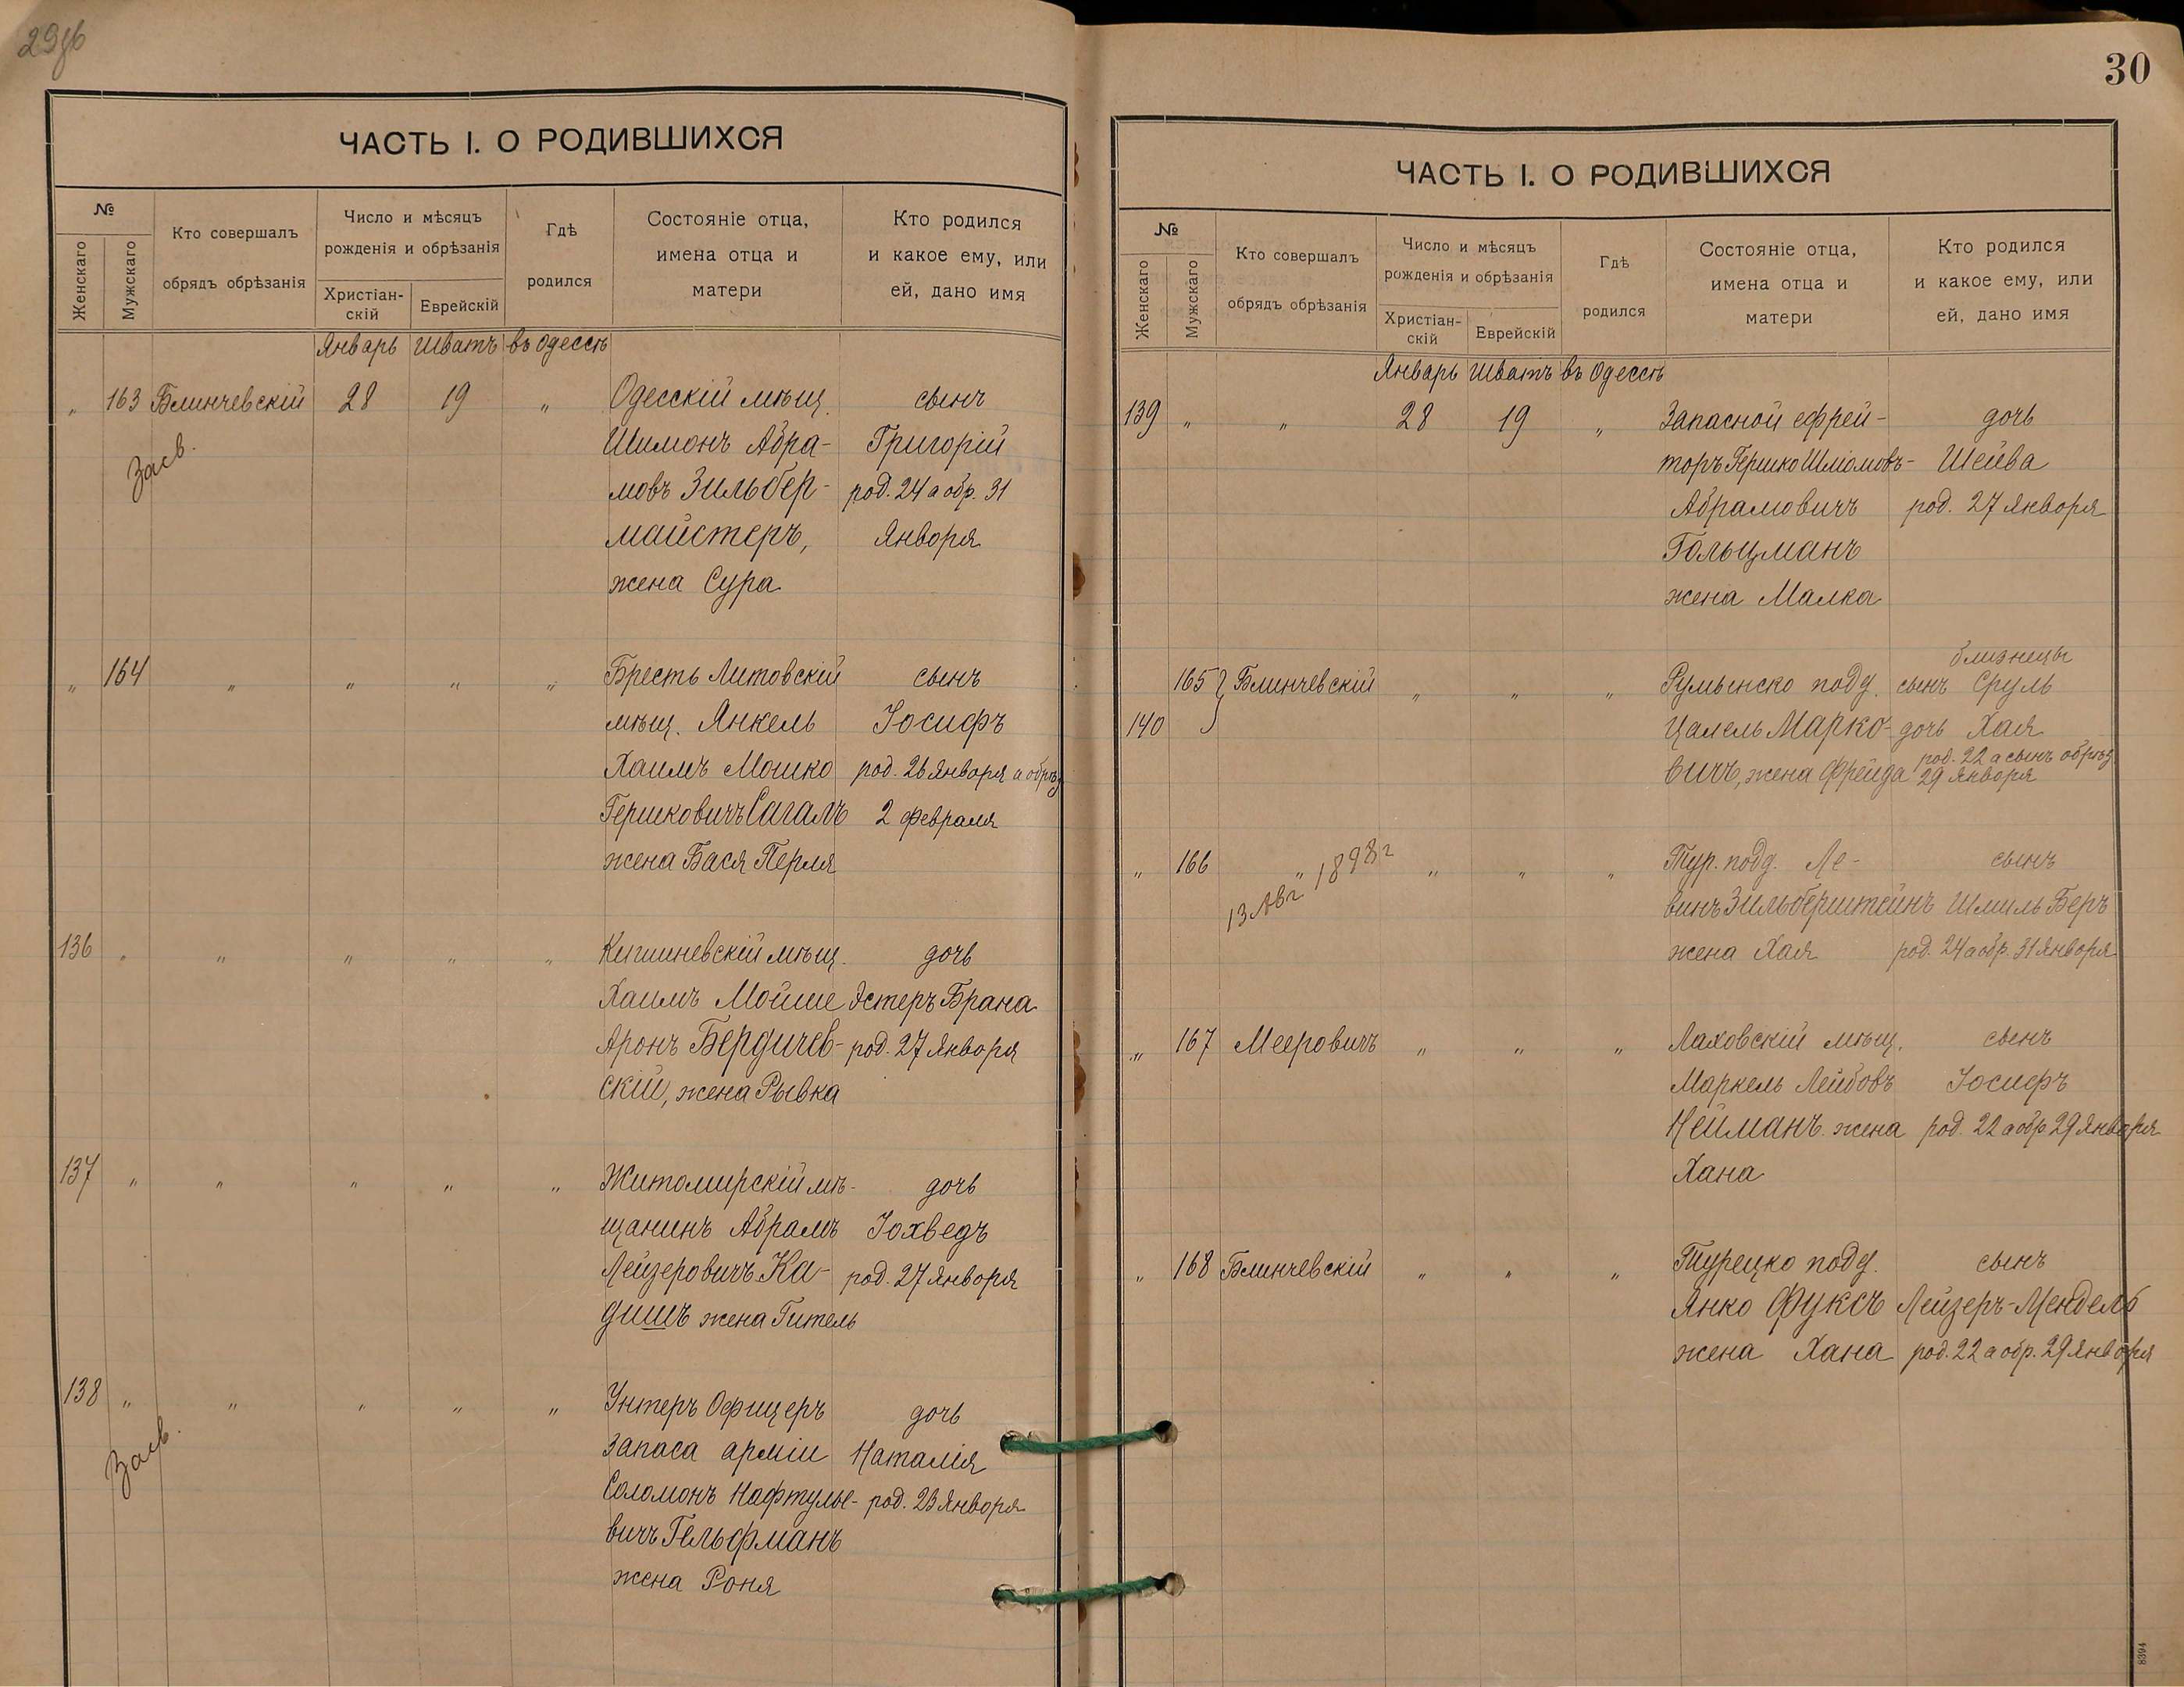 29об
ЧАСТЬ I. О РОДИВШИХСЯ
№
Женскаго
Мужскаго
Кто совершалъ
обрядъ обрѣзанія
Число и мѣсяцъ
рожденія и обрѣзанія
Христіан-
скій
Еврейскій
Гдѣ
родился
Состояніе отца,
имена отца и
матери
Кто родился
и какое ему, или
ей, дано имя
Январь Шватъ въ Одессѣ
„ 163 Блинчевскій 28 19 „ Одесскій мѣщ. сынъ
Засв.
Шимонъ Абра- Григорій
мовъ Зильбер- род. 24 а обр. 31
майстеръ, Января
жена Сура
„ 164 „ „ „ „ Брестъ Литовскій сынъ
мѣщ. Янкель Іосифъ
Хаимъ Мошко род. 26 Января а обрѣз
Гершковичъ Сагалъ 2 февраля
жена Бася Перля
136 „ „ „ „ „ Кишиневскій мѣщ. дочь
Хаимъ Мойше Эстеръ Брана
Аронъ Бердичев- род. 27 Января
скій, жена Рывка
137 „ „ „ „ „ Житомирскій мѣ- дочь
щанинъ Абрамъ Іохведъ
Лейзеровичъ Ка- род. 27 Января
дишъ жена Гитель
138 „ „ „ „ „ Унтеръ Офицеръ дочь
Засв.
запаса арміи Наталія
Соломонъ Нафтулье- род. 23 Января
вичъ Гельфманъ
жена Роня
30
ЧАСТЬ I. О РОДИВШИХСЯ
№
Женскаго
Мужскаго
Кто совершалъ
обрядъ обрѣзанія
Число и мѣсяцъ
рожденія и обрѣзанія
Христіан-
скій
Еврейскій
Гдѣ
родился
Состояніе отца,
имена отца и
матери
Кто родился
и какое ему, или
ей, дано имя
Январь Шватъ въ Одессѣ
139 „ „ 28 19 „ Запасной ефрей- дочь
торъ Гершко Шліомовъ- Шейва
Абрамовичъ род. 27 Января
Гольцманъ
жена Малка
близнецы
165 Блинчевскій „ „ „ Румынско подд. сынъ Сруль
140 Цалель Марко- дочь Хая
род. 22 а сынъ обрѣз
вичъ, жена Фрейда 29 Января
„ 166 „ „ „ „ Тур. подд. Ле- сынъ
13 Авг 1898 г
винъ Зильберштейнъ Шмиль Беръ
жена Хая род. 24 а обр. 31 Января
„ 167 Мееровичъ „ „ „ Лаховскій мѣщ. сынъ
Маркель Лейбовъ Іосифъ
Нейманъ жена род. 22 а обр 29 Января
Хана
„ 168 Блинчевскій „ „ „ Турецко подд. сынъ
Янко Фуксъ Лейзеръ-Мендель
жена Хана род. 22 а обр. 29 Января
8394